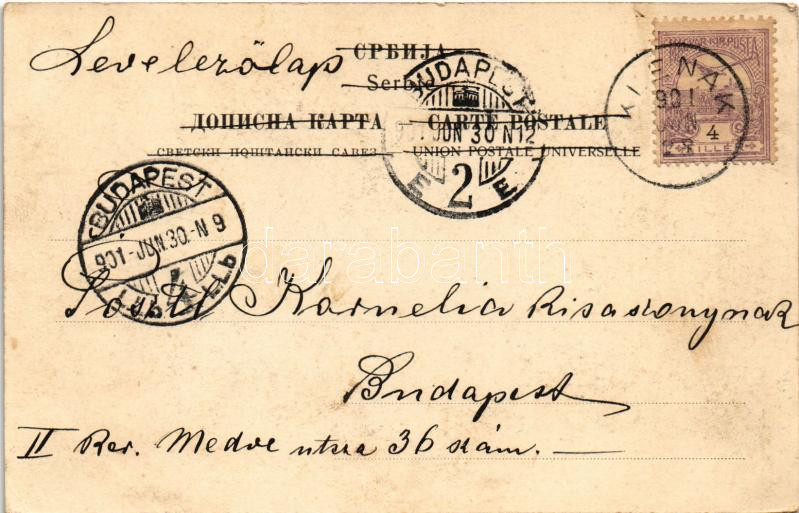 Levelezőlap
СРБИЈА
Serbie
ДОПИСНА КАРТА CARTE POSTALE
СВЕТСКИ ПОШТАНСКИ САВЕЗ UNION POSTALE UNIVERSELLE
MAGYAR KIR. POSTA
4
FILLÉR
KLENAK
901
JUN
BUDAPEST
901 JUN 30 N12
E 2 E
BUDAPEST
901-JUN.30.-N 9
darabanth
Kornelia kisasszonynak
Budapest
II Ker. Medve utsza 36 szám.